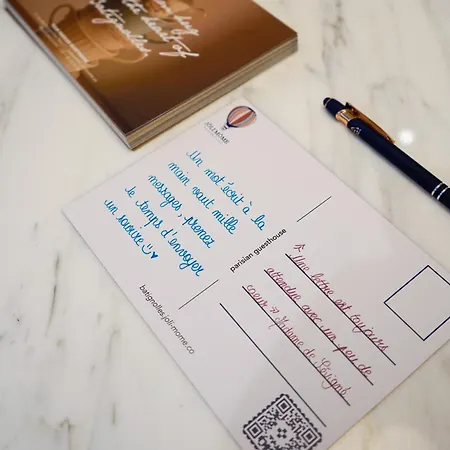 JOLI MÔME
Un mot écrit à la
main vaut mille
messages, prenez
le temps d'envoyer
un sourire
parisian guesthouse
batignolles.joli-mome.co
Une lettre est toujours
attendue avec un peu de
coeur
Madame de Sévigné